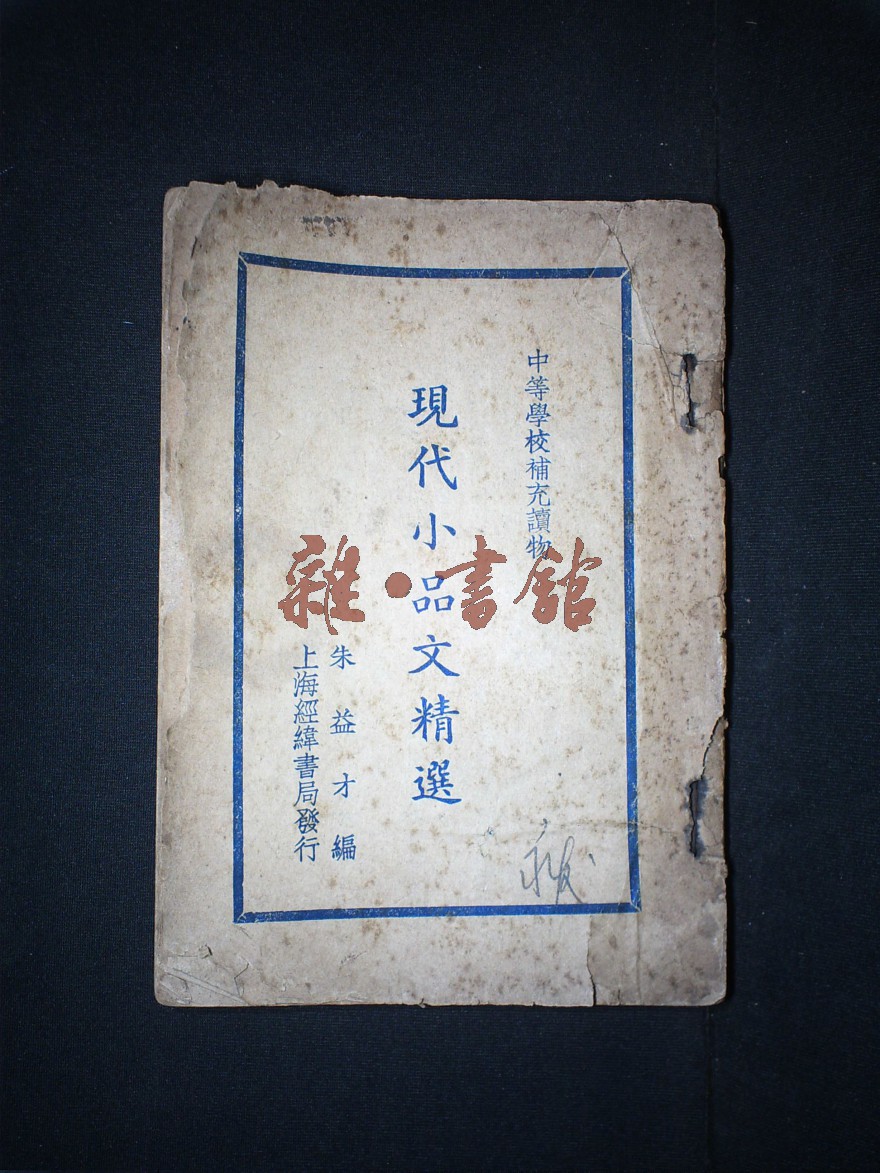 中等學校補充讀物
現代小品文精選
朱益才編
上海經緯書局發行
雜·書館